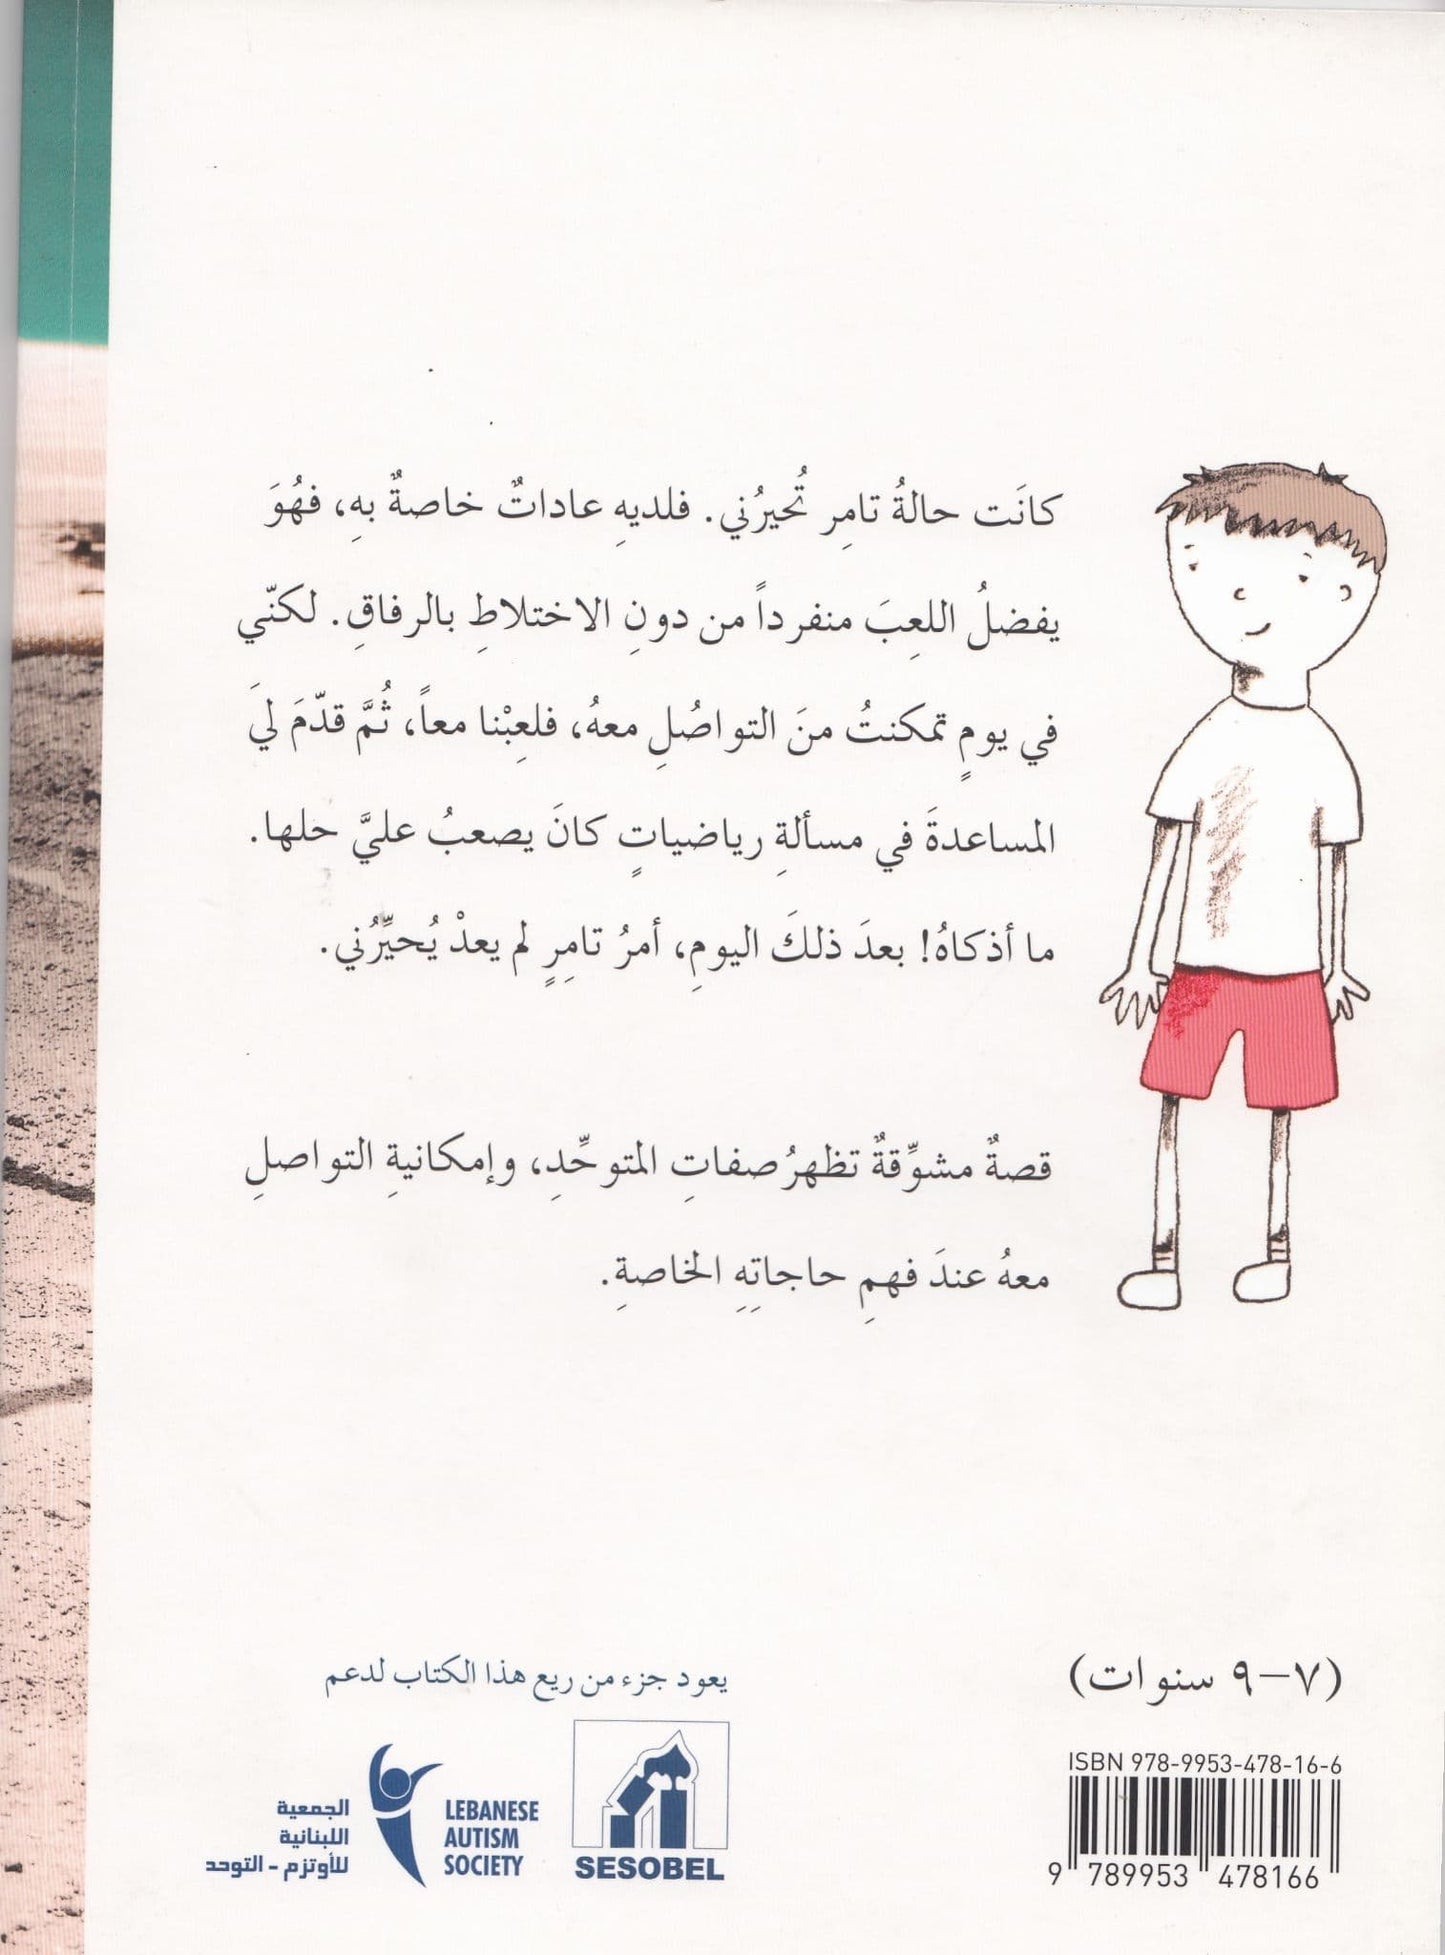 كانَت حالةُ تامِر تُحيرُني. فلديهِ عاداتٌ خاصةٌ بهِ، فهُوَ
يفضلُ اللعِبَ منفرداً من دونِ الاختلاطِ بالرفاقِ. لكنّني
في يومٍ تمكنتُ منَ التواصُلِ معهُ، فلعِبْنا معاً، ثُمَّ قدّمَ ليَ
المساعدةَ في مسألةِ رياضياتٍ كانَ يصعبُ عليَّ حلها.
ما أذكاهُ! بعدَ ذلكَ اليومِ، أمرُ تامِرٍ لم يعدْ يُحيِّرُني.
قصةٌ مشوِّقةٌ تظهرُ صفاتِ المتوحِّدِ، وإمكانيةِ التواصلِ
معهُ عندَ فهمِ حاجاتِهِ الخاصةِ.
(٧-٩ سنوات)
ISBN 978-9953-478-16-6
9 789953 478166
يعود جزء من ريع هذا الكتاب لدعم
SESOBEL
LEBANESE
AUTISM
SOCIETY
الجمعية
اللبنانية
للأوتزم - التوحد